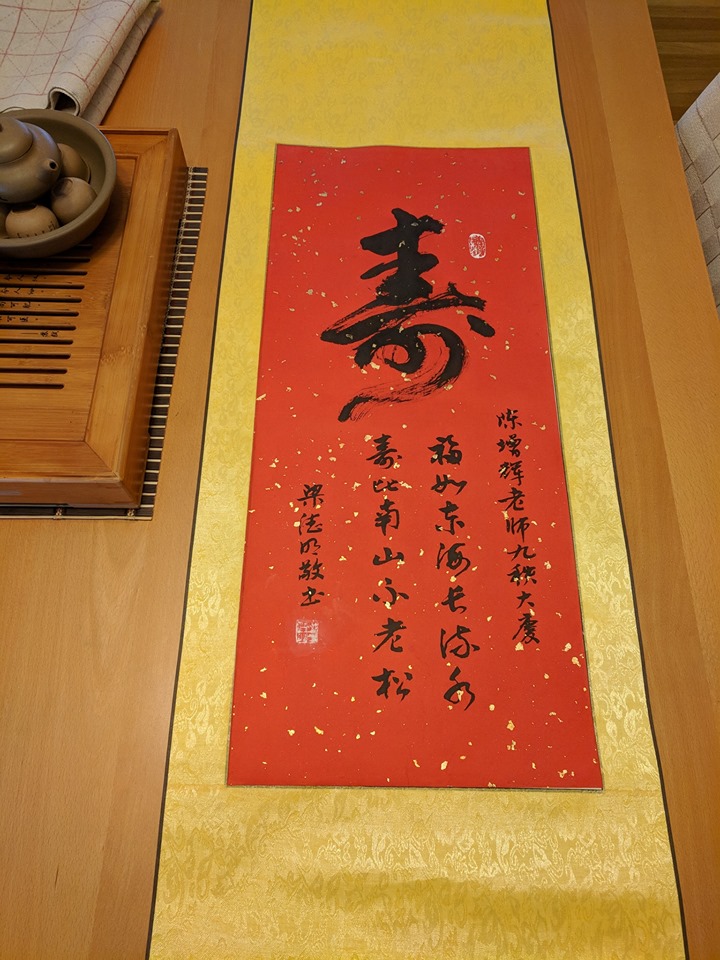 寿
陈增辉老师九秩大庆
福如东海长流水
寿比南山不老松
梁德明敬书